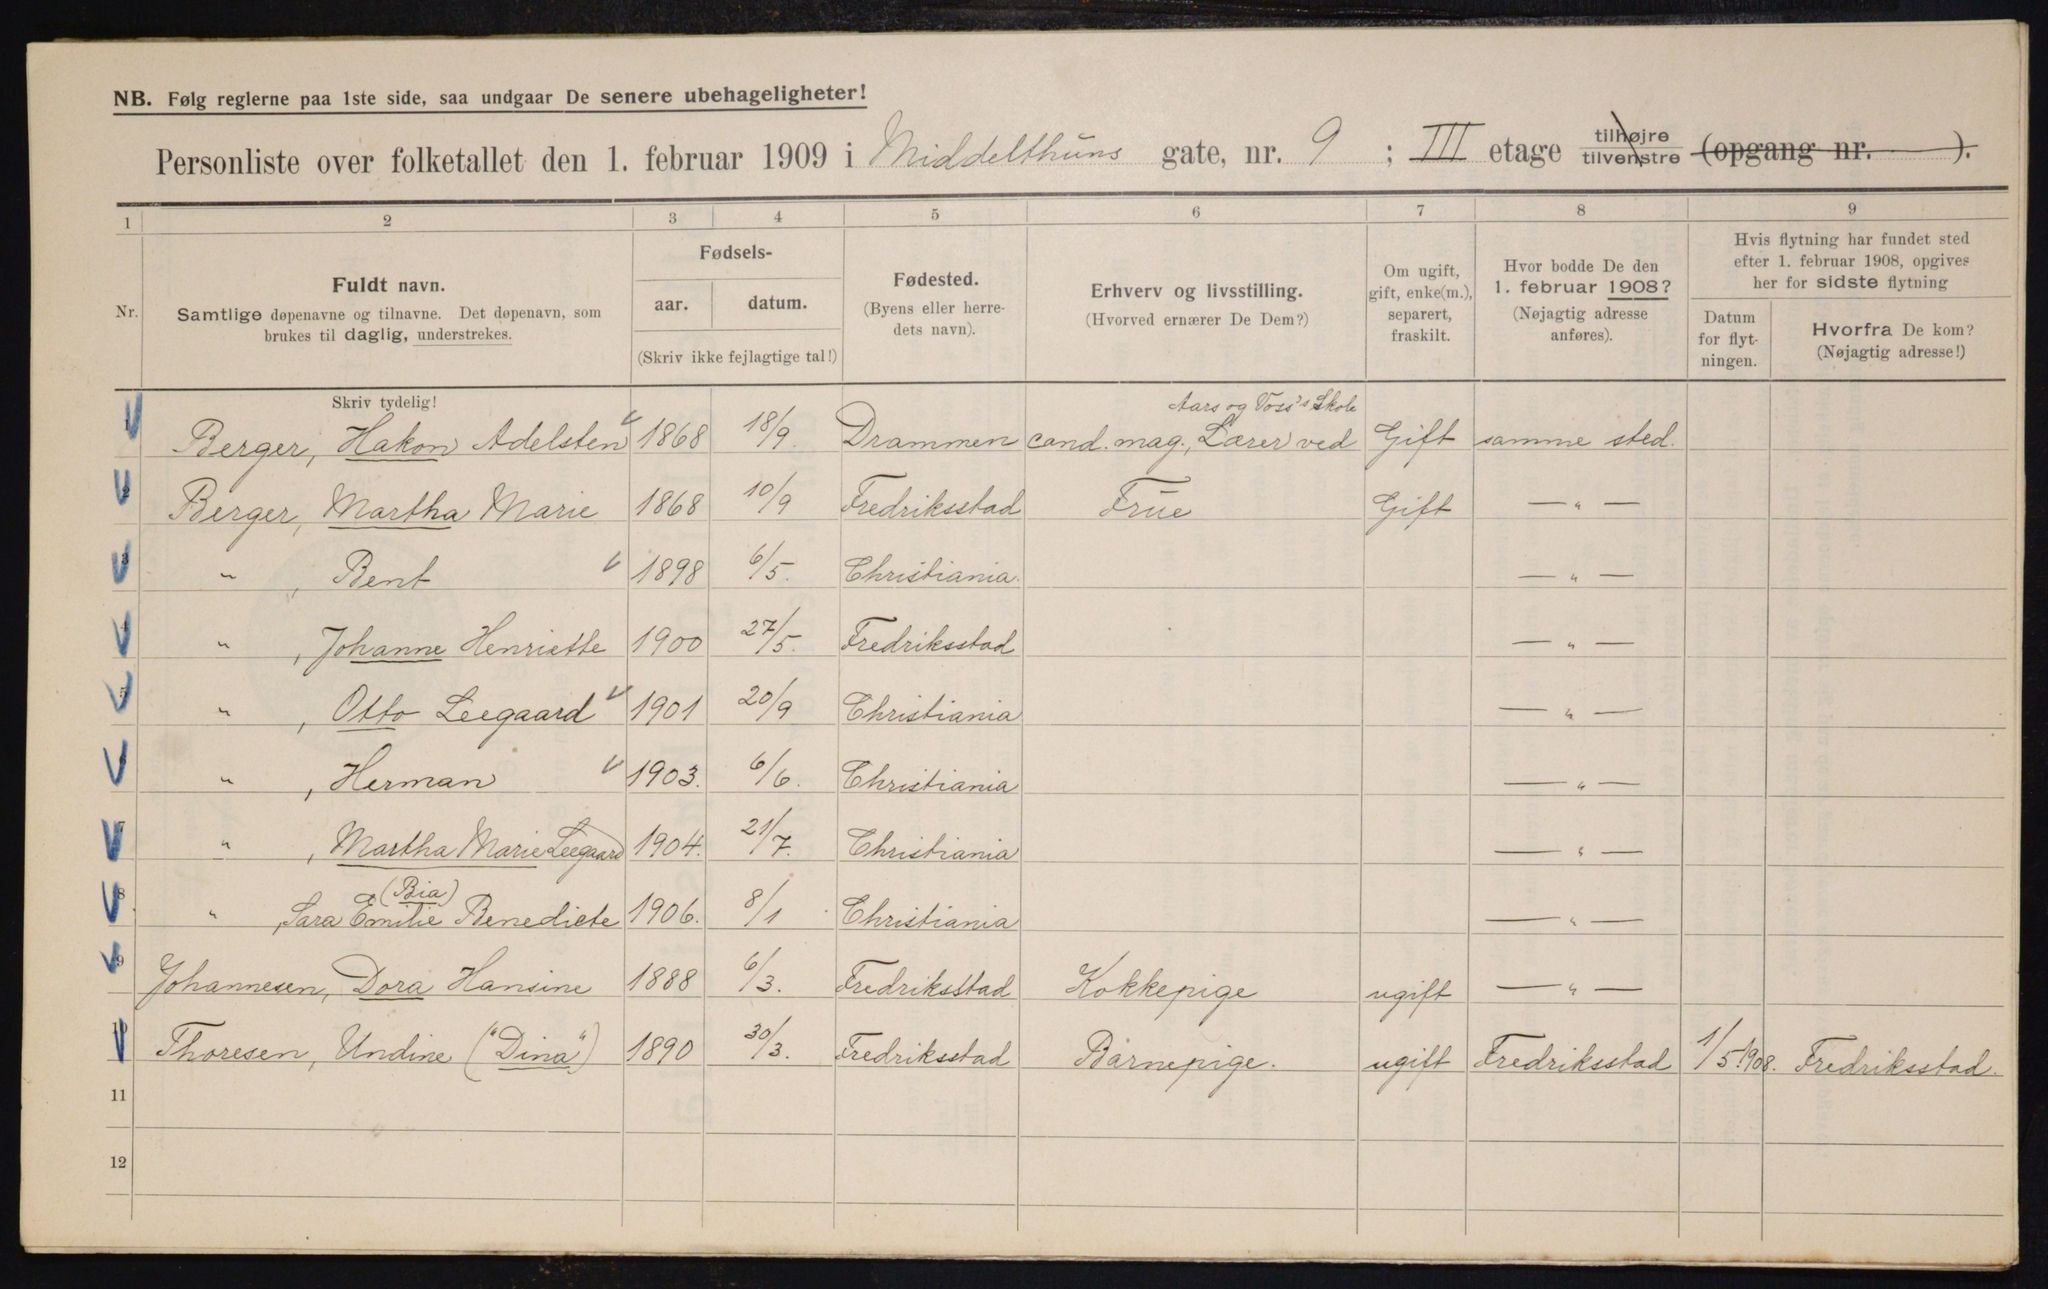 NB. Følg reglerne paa 1ste side, saa undgaar De senere ubehageligheter!
Personliste over folketallet den 1. februar 1909 i Middelthuns gate, nr. 9 ; III etage tilhøjre tilvenstre (opgang nr. ).
1 2 3 4 5 6 7 8 9
Nr.
Fuldt navn.
Samtlige døpenavne og tilnavne. Det døpenavn, som
brukes til daglig, understrekes.
Fødsels-
aar. datum.
(Skriv ikke fejlagtige tal!)
Fødested.
(Byens eller herre-
dets navn).
Erhverv og livsstilling.
(Hvorved ernærer De Dem?)
Om ugift,
gift, enke(m.),
separert,
fraskilt.
Hvor bodde De den
1. februar 1908?
(Nøjagtig adresse
anføres).
Hvis flytning har fundet sted
efter 1. februar 1908, opgives
her for sidste flytning
Datum
for flyt-
ningen.
Hvorfra De kom?
(Nøjagtig adresse!)
Skriv tydelig!
Aars og Voss's Skole
1 Berger, Hakon Adelsten 1868 18/9. Drammen cand. mag., Lærer ved Gift samme sted.
2 Berger, Martha Marie 1868 10/9 Fredriksstad Frue Gift — " —
3 " , Bent 1898 6/5. Christiania. — " —
4 " , Johanne Henriette 1900 27/5. Fredriksstad — " —
5 " , Otto Leegaard 1901 20/9 Christiania — " —
6 " , Herman 1903. 6/6. Christiania — " —
7 " , Martha Marie Leegaard 1904. 21/7. Christiania — " —
(Bia)
8 " , Sara Emilie Benedicte 1906. 8/1 Christiania — " —
9 Johannesen, Dora Hansine 1888 6/3. Fredriksstad Kokkepige ugift — " —
10 Thoresen, Undine ("Dina") 1890 30/3. Fredriksstad Barnepige. ugift Fredriksstad 1/5 1908. Fredriksstad.
11
12